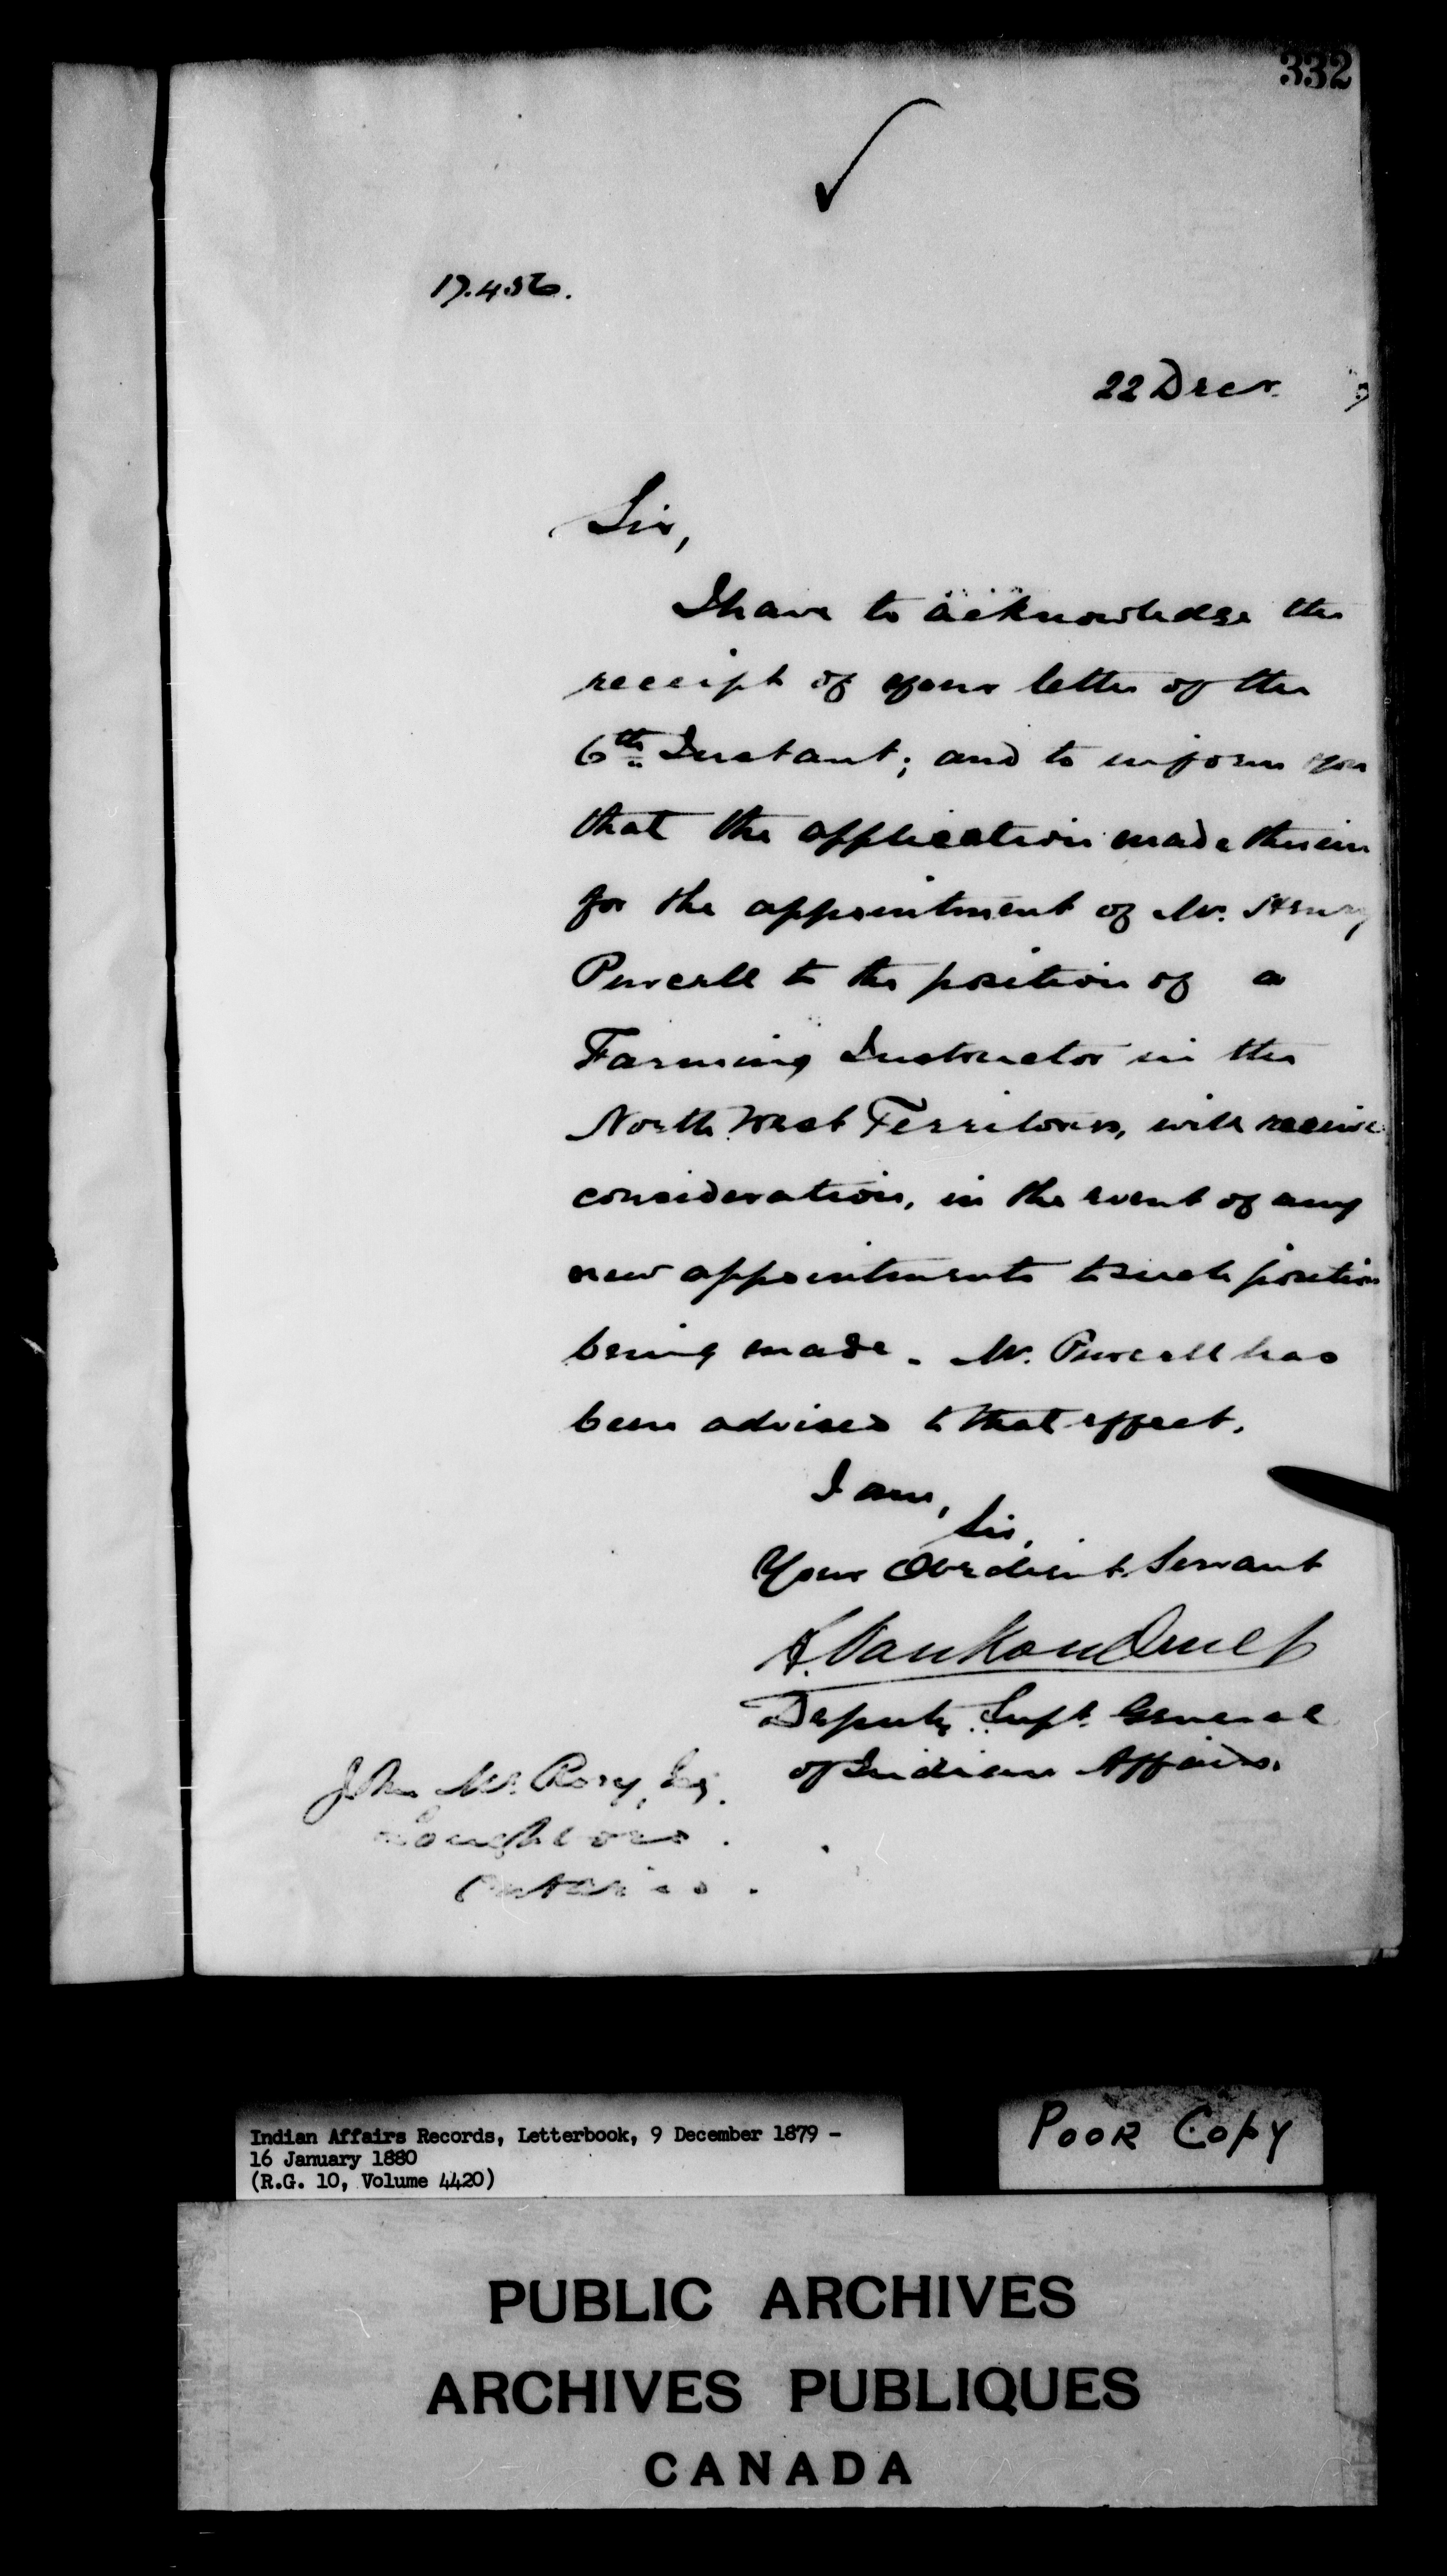 332
17.456.
22 Decr. 9
Sir,
I have to acknowledge the
receipt of your letter of the
6th Instant; and to inform you
that the application made therein
for the appointment of Mr. Henry
Purcell to the position of a
Farming Instructor in the
North West Territories, will receive
consideration, in the event of any
new appointments to such position
being made. Mr. Purcell has
been advised to that effect.
I am,
Sir,
Your Obedient Servant
L. VanKoughnet
Deputy Supt. General
of Indian Affairs.
John Mc Rory, Esq.
Loughboro.
Ontario.
Indian Affairs Records, Letterbook, 9 December 1879 -
16 January 1880
(R.G. 10, Volume 4420)
POOR COPY
PUBLIC ARCHIVES
ARCHIVES PUBLIQUES
CANADA